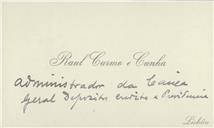 Raul Carmo e Cunha
Administrador da Caixa
Geral Depozitos credito e Previdencia
Lisbôa